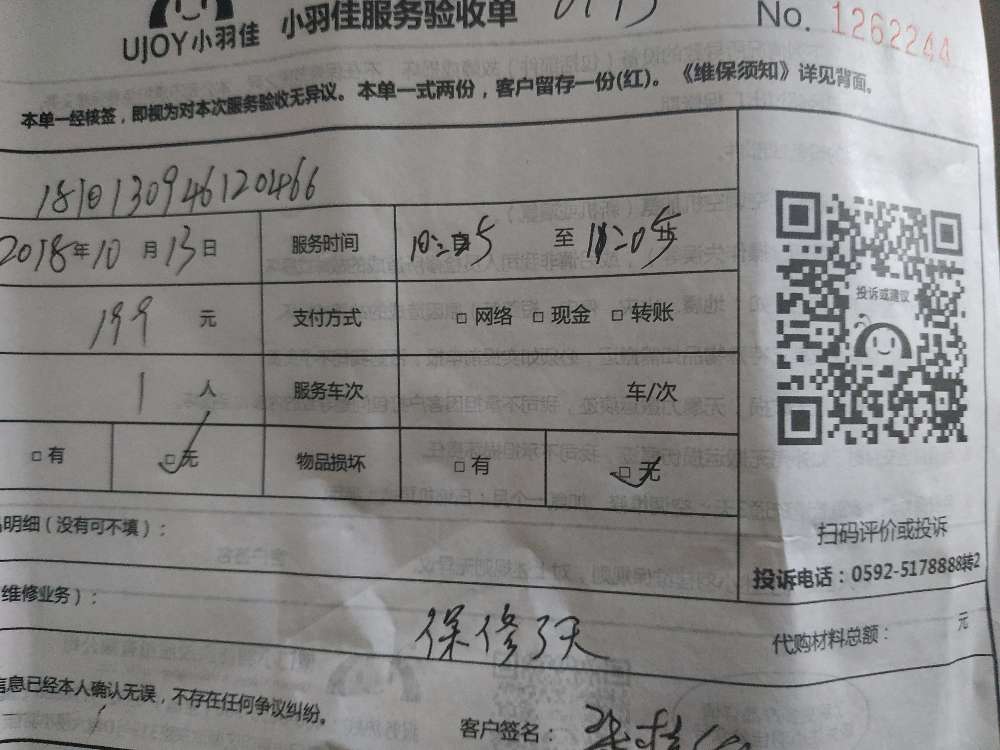 UJOY小羽佳 小羽佳服务验收单 No. 1262244
本单一经核签，即视为对本次服务验收无异议。本单一式两份，客户留存一份(红)。《维保须知》详见背面。
1810130946120466
2018年10月13日 服务时间 至
199 元 支付方式 □ 网络 □ 现金 □ 转账
1 人 服务车次 车/次
□ 有 □ 无 物品损坏 □ 有 □ 无
投诉或建议
扫码评价或投诉
投诉电话：0592-5178888转2
明细（没有可不填）：
维修业务）：
保修7天
代购材料总额： 元
信息已经本人确认无误，不存在任何争议纠纷。
客户签名：